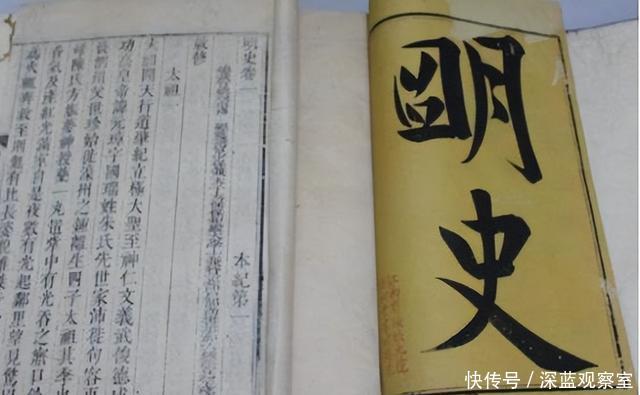 朙史
明史卷一
本紀第一
敕修
太祖一
太祖開天行道肇紀立極大聖至神仁文義武俊德成
功高皇帝諱元璋字國瑞姓朱氏先世家沛徙句容再
徙泗州父世珍始徙濠州之鍾離生四子太祖其季也
母陳氏方娠夢神授藥一丸置掌中有光吞之寤口餘
香氣及產紅光滿室自是夜數有光起鄰里望見驚以
爲火輒奔救至則無有比長姿貌雄傑
快传号/深蓝观察室